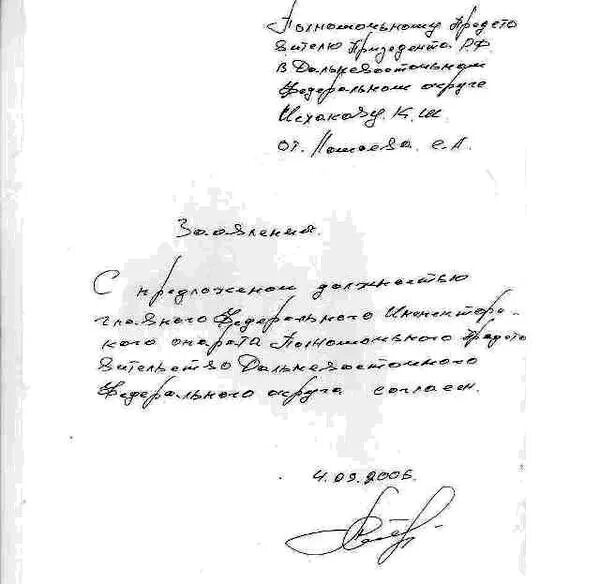 Полномочному Предста
вителю Призедента РФ
в Дальневосточном
Федеральном округе
Исхакову К.Ш.
от
Заявления
С предложеном должностью
главного Федерального Инспекторс-
кого апарата Полномочного Предста
вительство Дальневосточного
Федерального округа согласен.
4.09.2006.